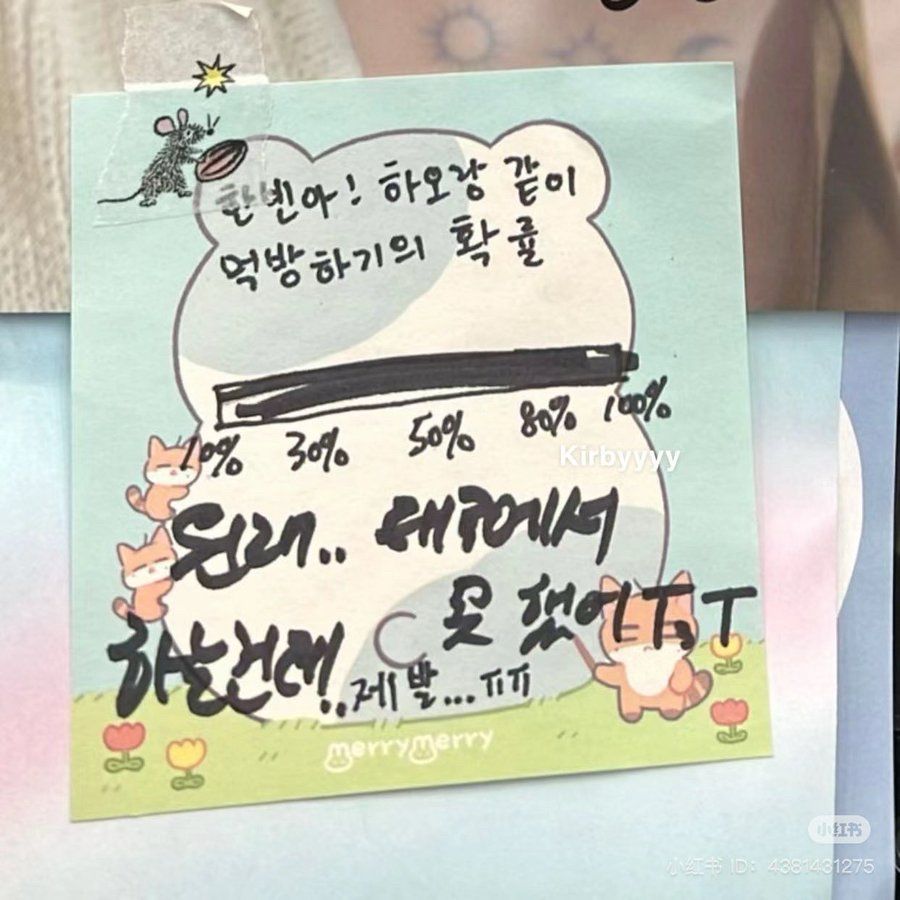 한빈아! 하오랑 같이
먹방하기의 확률
10% 30% 50% 80% 100%
Kirbyyyy
원래.. 해주에서
못 했어 T.T
하는건데!.. 제발... ㅠㅠ
merrymerry
小红书
小红书 ID: 4381431275